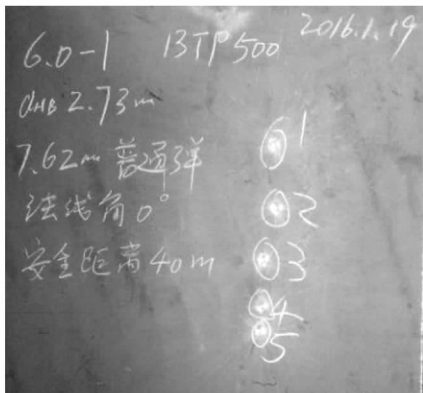 6.0-1 BTP500 2016.1.19
dHB 2.73m
7.62m 普通弹
法线角0°
安全距离40m
1
2
3
4
5